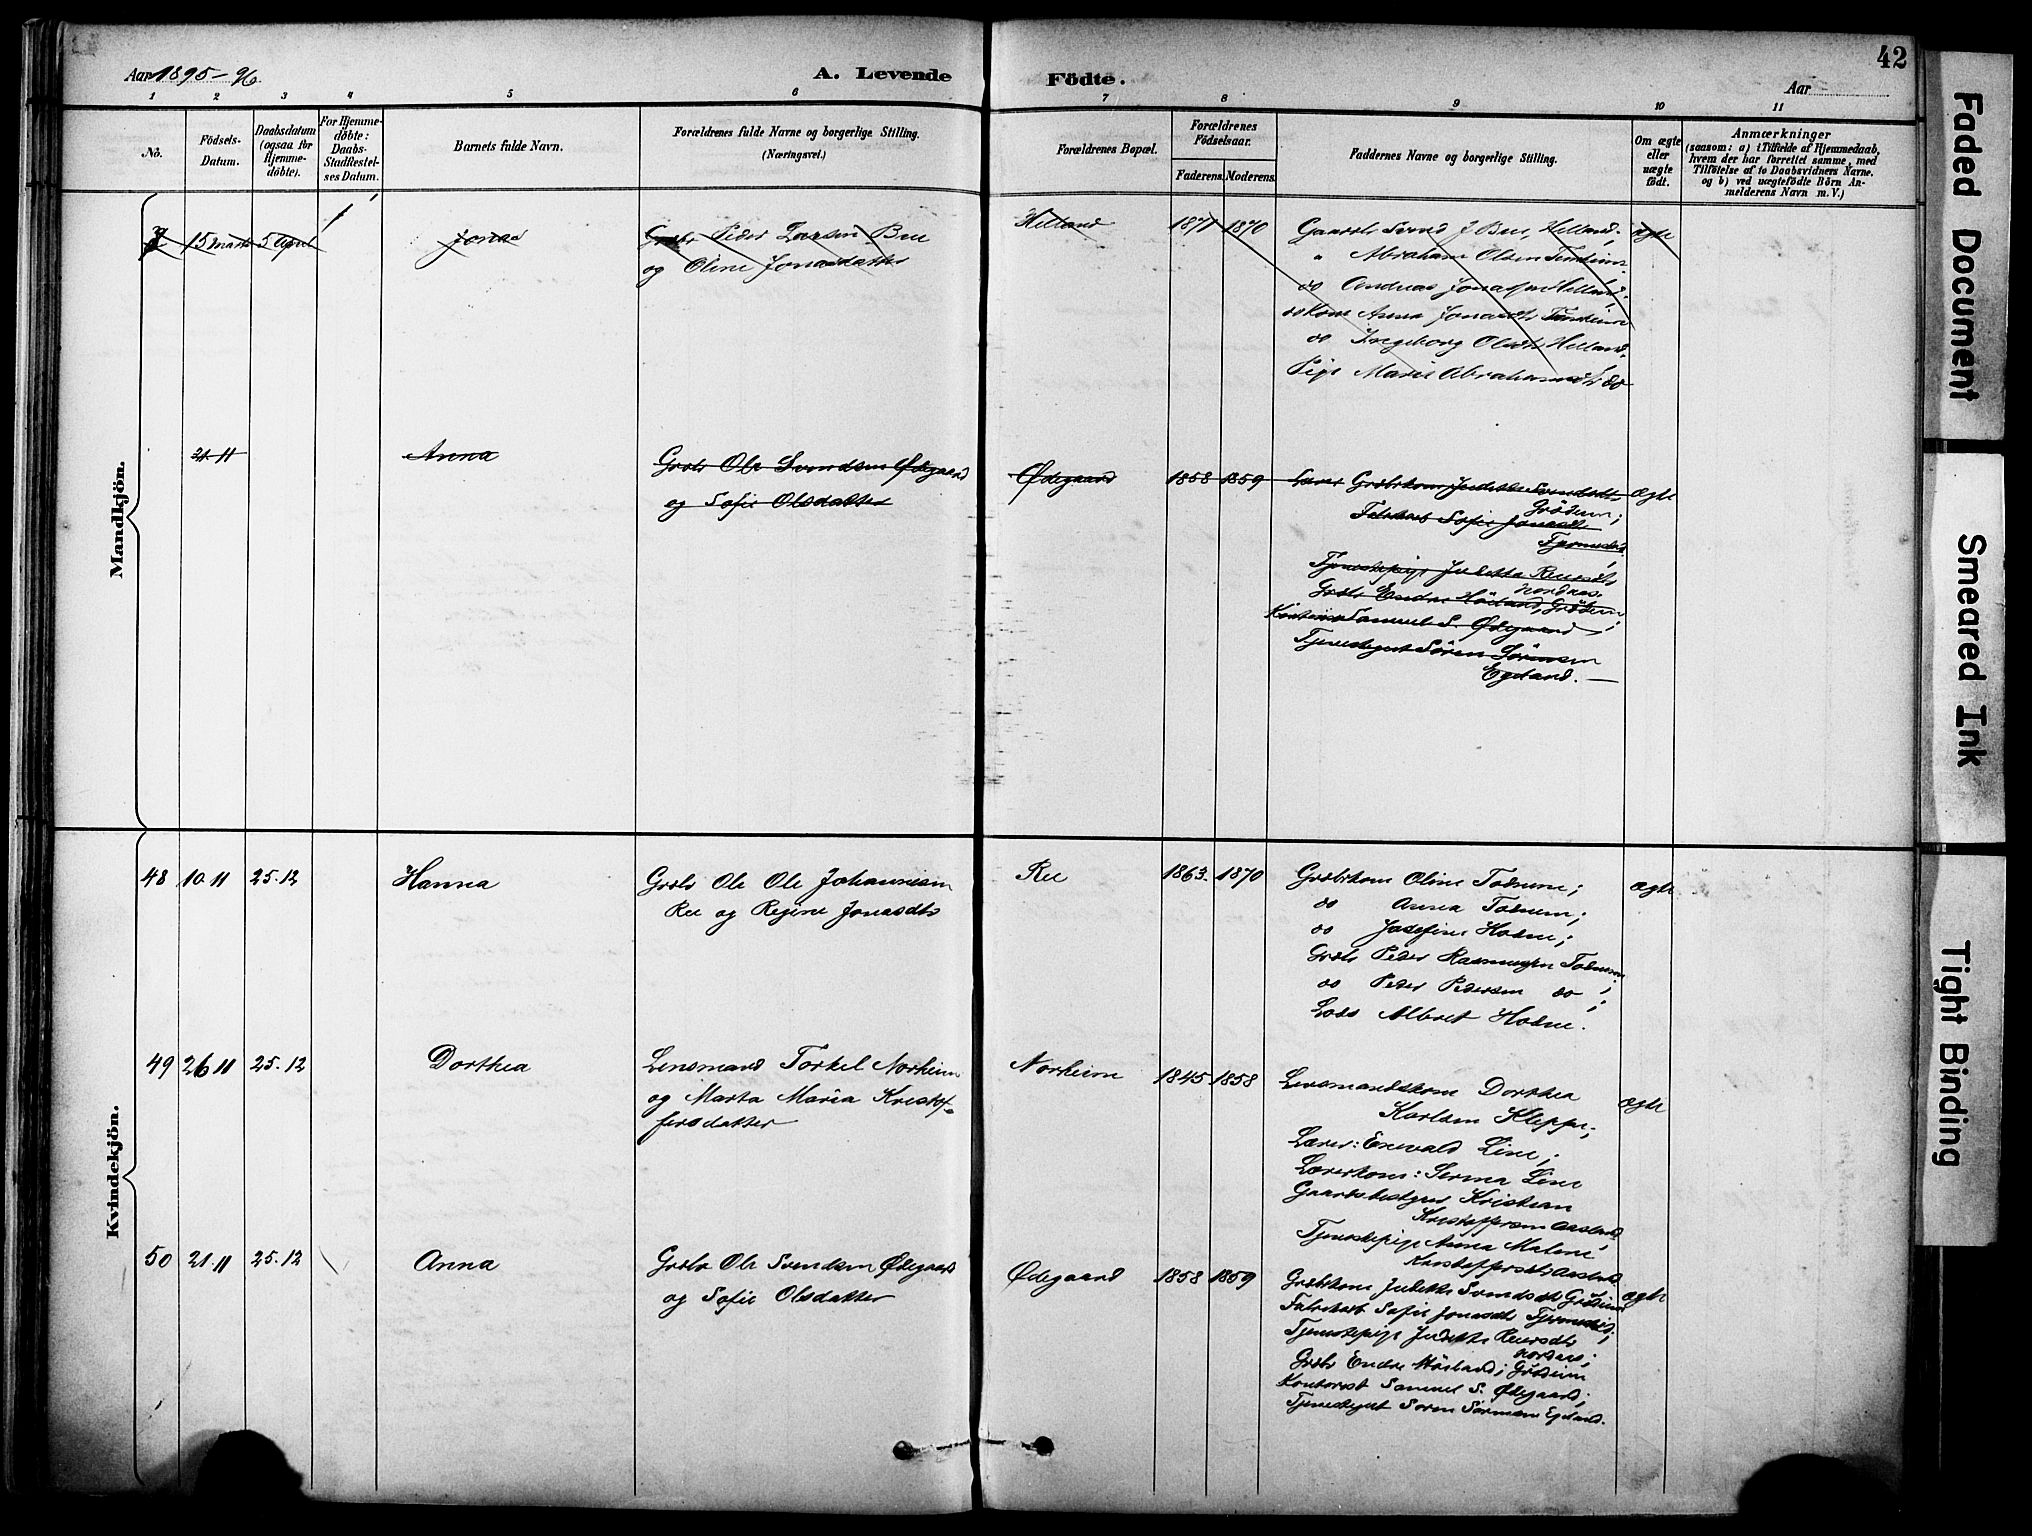 42
Aar 1895-96.
A. Levende
Födte.
Aar
1
2
3
4
5
6
7
8
9
10
11
No.
Födsels-
Datum.
Daabsdatum
(ogsaa for
Hjemme-
döbte).
For Hjemme-
döbte:
Daabs-
Stadfæstel-
ses Datum.
Barnets fulde Navn.
Forældrenes fulde Navne og borgerlige Stilling.
(Næringsvei.)
Forældrenes Bopæl.
Forældrenes
Födselsaar.
Faderens.
Moderens.
Faddernes Navne og borgerlige Stilling.
Om ægte
eller
uægte
födt.
Anmærkninger
(saasom: a) i Tilfælde af Hjemmedaab,
hvem der har forrettet samme, med
Tilföielse af to Daabsvidners Navne.
og b) ved uægtefödte Börn An-
melderens Navn m. V.)
Mandkjön.
15 marts 5 April
Jonas
Grdbr Peder Larsen Bue
og Oline Jonasdatter
Helland
1871 1870
Gaardbr Svend J Bue, Helland;
" Abraham Olsen
do Andreas Jonassen Helland.
do Kone Anna Jonasdtr
do Ingeborg Olsdtr Helland.
Pige Marie Abrahamsdtr do
ægte
21 11
Anna
Grdbr Ole Svendsen Ødegaard
og Sofie Olsdatter
Ødegaard
1858 1859
Grdbrkone Judithe Svendsdtr
Grödem;
Sofie Jonasdtr
Tjenestepige Judithe Reiersdtr
Nordnes.
Grdbr Endre Höiland, Grödem;
Samuel S. Ødegaard
Tjenestegut Sören Sörensen
Egeland.
ægte
Kvindekjön.
48 10.11 25.12
Hanna
Grdbr Ole Ole Johannesen
Ree og Regine Jonasdtr
Ree
1863. 1870
Grdbrkone Oline Todnem;
do Anna Todnem;
do Josefine Hodne;
Grdbr Peder Rasmussen Todnem;
do Peder Pedersen do;
Lods Albret Hodne.
ægte
49 26 11 25.12
Dorthea
Lensmand Torkel Norheim
og Marta Maria Kristof-
fersdatter
Norheim
1845 1858
Lensmandskone Dorthea
Karlsen Kleppe;
Lærer: Enevald Line;
Lærerkone: Serina Line
Gaardsbestyrer Kristian
Kristoffersen Aasland
Tjenestepige Anna Malene
Kristoffersdtr Aasland.
ægte
50 21.11 25.12
Anna
Grdbr Ole Svendsen Ødegaard
og Sofie Olsdatter
Ødegaard
1858 1859
Grdbrkone Judithe Svendsdtr Grödem
Sofie Jonasdtr
Tjenestepige Judithe Reiersdtr
Nordnes;
Grdbr Endre Höiland; Grödem
Kontorist Samuel S. Ødegaard;
Tjenestegut Soren Sörensen Egeland.
ægte
Faded Document
Smeared Ink
Tight Binding